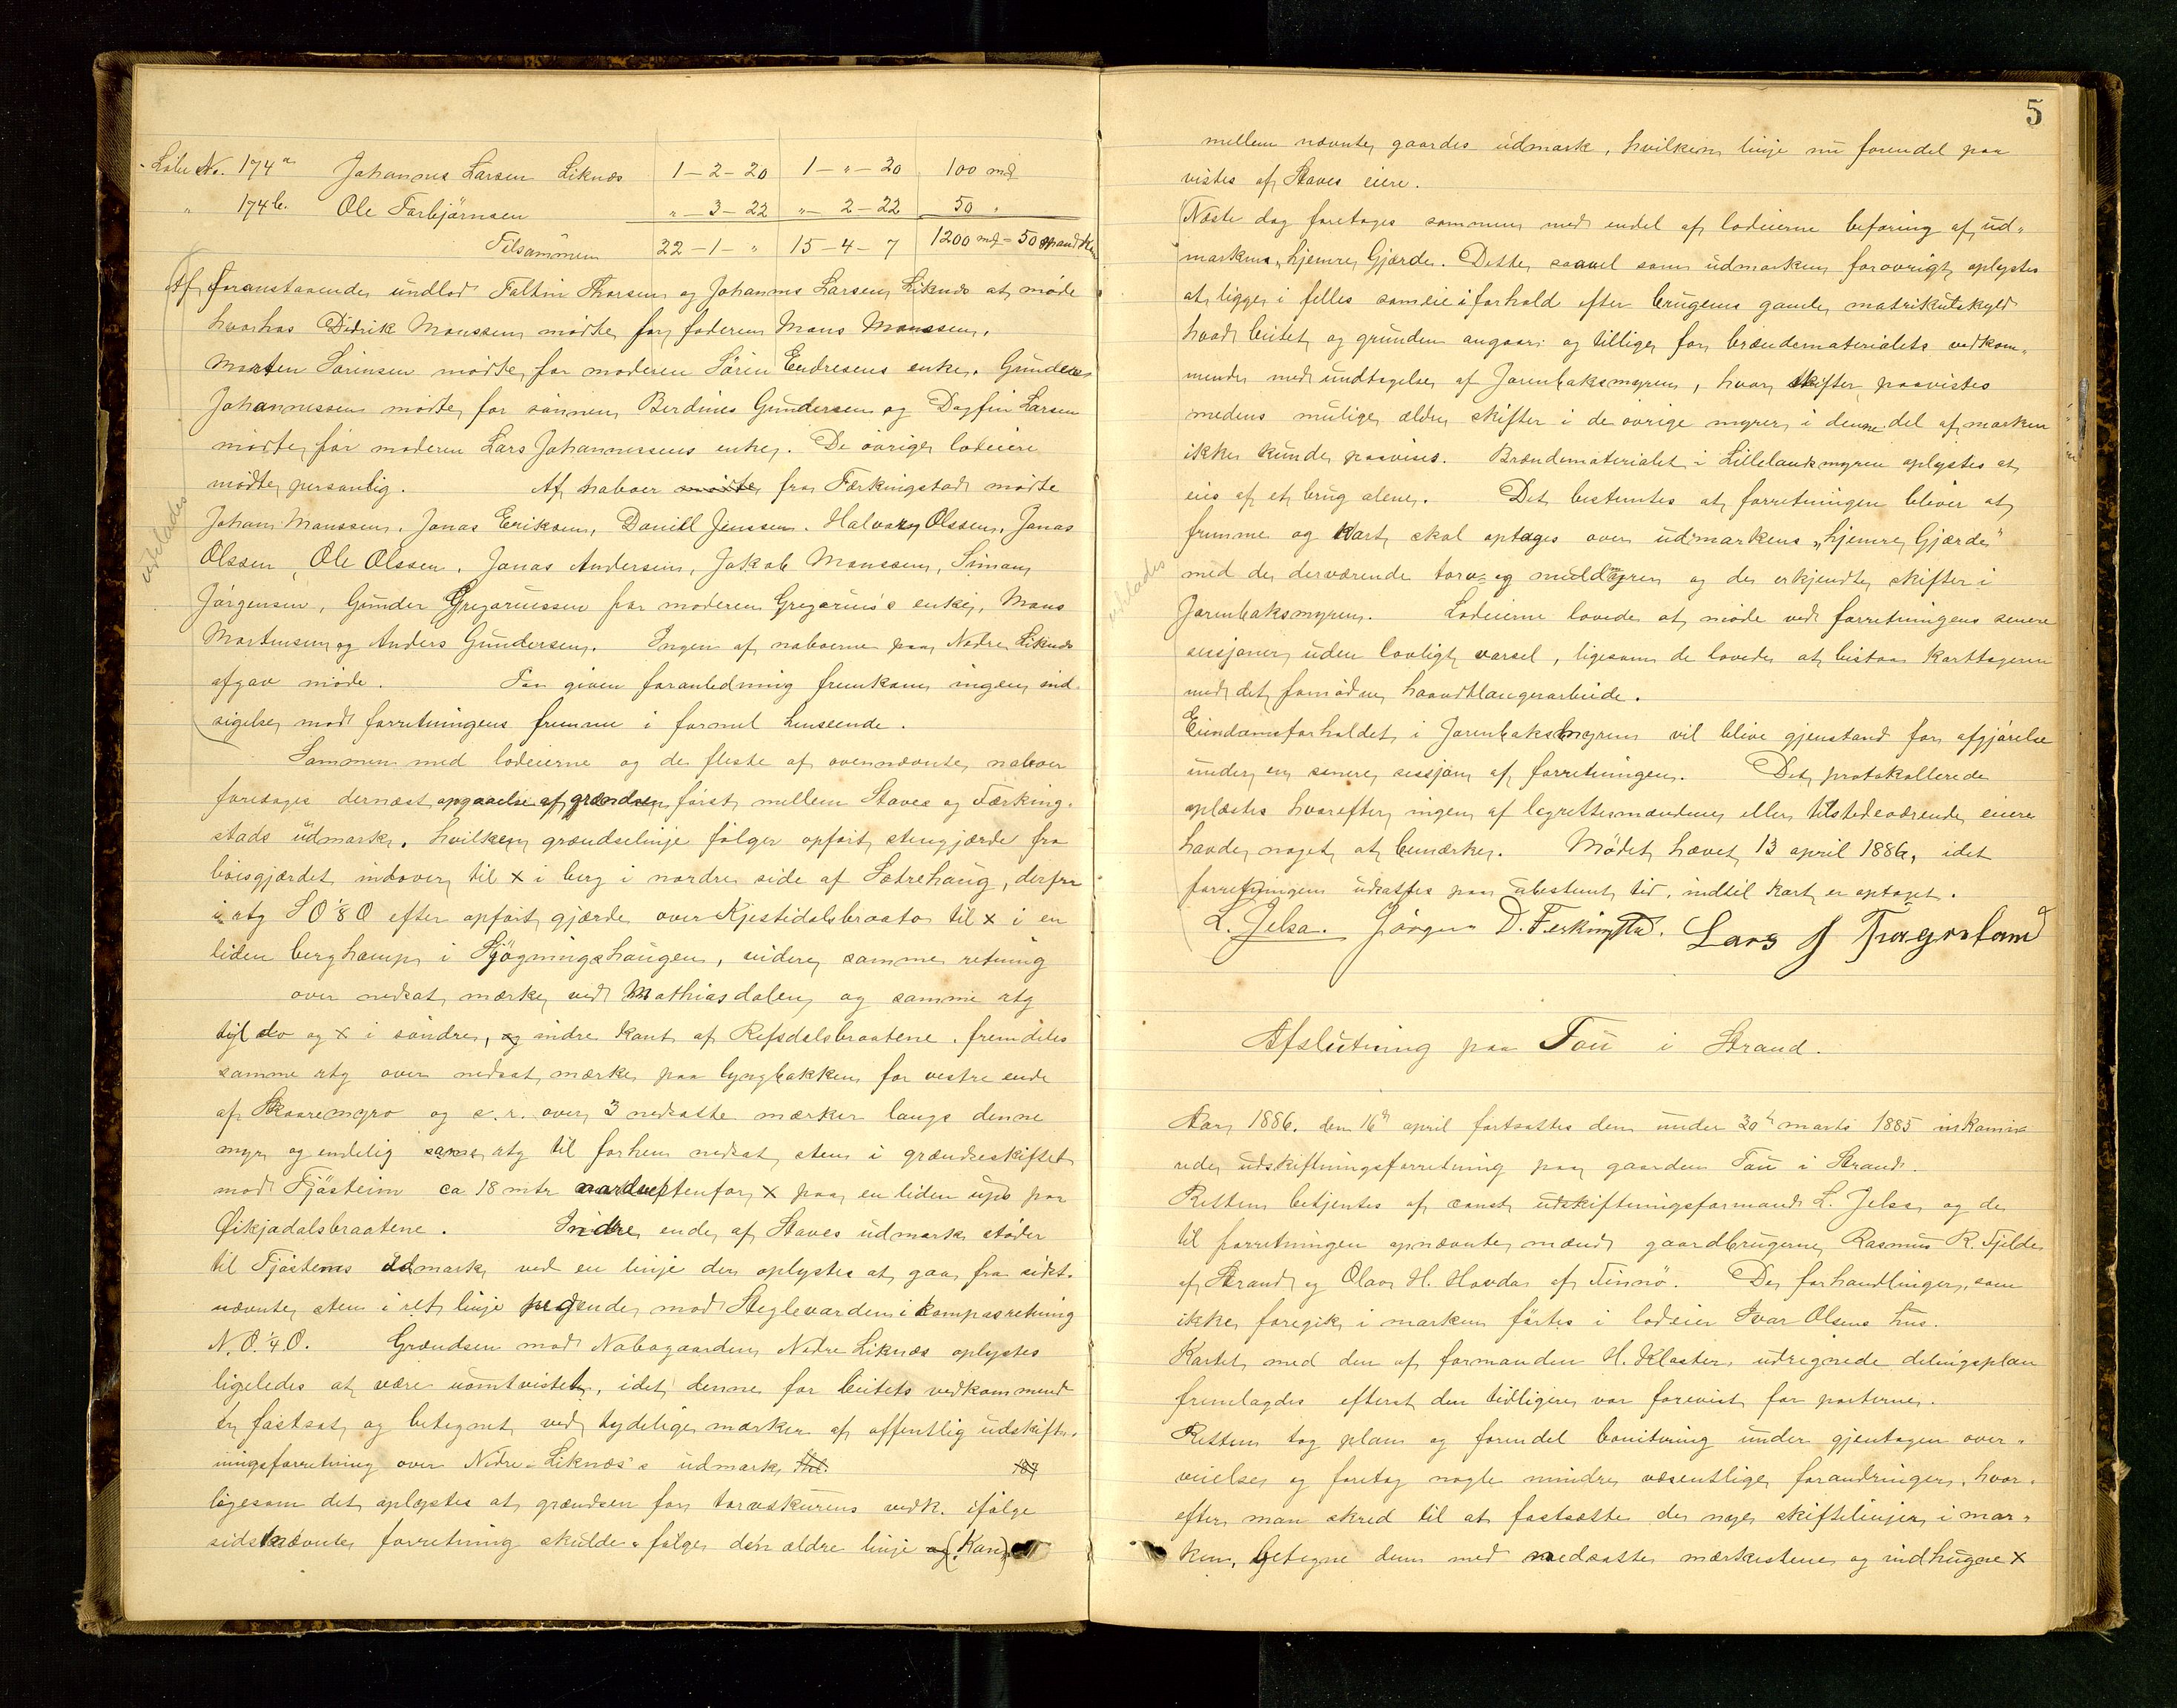 Löbe No. 174a Johannes Larsen Liknæs 1-2-20 1-"-20 100 md
" 174b. Ole Torbjörnsen "-3-22 "-2-22 50 "
Tilsammen 22-1-" 15-4-7 1200 md = 50
Af foranstaaende undlod Faltin Thorsen og Johannes Larsen Liknæs at møde
hvorhos Didrik Monssen mödte for faderen Mons Monssen.
Morten Sörensen mödte for moderen Sören Endresens enke. Gunder
Johannessen mødte for sönnen Berdines Gundersen og Dagfin Larsen
mødte for moderen Lars Johannessens enke. De övrige lodeiere
mödte personlig. Af naboer mödte fra Færkingstad mödte
Johan Monssen, Jonas Eriksen, Daniel Jenssen. Halvor Olssen, Jonas
Olssen, Ole Olssen, Jonas Andersen, Jakob Monssen, Simon
Jörgensen, Gunder Gregoriussen for moderen Gregorius's enke, Mons
Mortensen og Anders Gundersen. Ingen af naboerne paa Nedre Liknæs
afgav möde. Paa given foranledning fremkom ingen ind-
sigelse mod forretningens fremme i formel henseende.
udelades
Sammen med lodeierne og de fleste af ovennævnte naboer
foretoges dernæst opgaaelse af grændsen först mellem Staves og Færking-
stads udmark, hvilken grændselinje fölger opfört stengjærde fra
böisgjærdet indover til x i berg i nordre side af Sætrehaug, derfra
i rtg S O 1/8 O efter opfört gjærde over Kjestidalsbraatø til x i en
liden berghamp i Skjögningshaugen, videre samme retning
over nedsat mærke ved Mathiasdalen og samme rtg
til do og x i söndre, og indre kant af Refsdalsbraatene. fremdeles
samme rtg over nedsat mærke paa lyngbakken for vestre ende
af Skaaremyro og s.r. over 3 nedsatte mærker langs denne
myr og endelig same rtg til forhen nedsat sten i grændseskiftet
mod Fjösteim ca 18 mtr nordvestenfor x paa en liden
Öikjadalsbraatene. Indre ende af Staves udmark støder
til Fjöstems udmark ved en linje der oplystes at gaa fra sidst-
nævnte sten i ret linje pegende mod Steglevarden i kompasretning
N.O. 1/4 O. Grændsen mod Nabogaarden Nedre Liknæs oplystes
ligeledes at være uomtvistet, idet denne for beitets vedkommend
er fastsat og betegnet ved tydelige mærker af offentlig udskift-
ningsforretning over Nedre Liknæs's udmark
ligesom det oplystes at grændsen for torvskurens vedk. ifölge
sidstnævnte forretning skulde fölge den ældre linje og (Kan)
5
mellem nævnte gaardes udmark, hvilken linje nu forendel paa
vistes af Staves eiere.
Næste dag foretoges sammen med endel af lodeierne befaring af ud-
markens "hjemre Gjærde. Dette saavel som udmarken forøvrigt oplystes
at ligge i felles sameie i forhold efter brugens gamle matrikulskyld
hvad beitet og grunden angaar og tillige for brændematerialets vedkom-
mende med undtagelse af Jarenbaksmyren, hvor skifter paavistes
medens mulige ældre skifter i de övrige myrer i denne del af marken
ikke kunde paavises. Brændematerialet i Lillelandsmyren oplystes at
eies af et brug alene. Det bestemtes at forretningen bliver at
fremme og Kart skal optages over udmarkens „hjemre Gjærde"
med de derværende torv- og muldmyrer og de erkjendte skifter i
Jarenbaksmyren. Lodeierne lovede at möde ved forretningens senere
sessjoner uden lovligt varsel, ligesom de lovede at bistaa karttageren
med det fornödne haandtlangerarbeide.
udelades
Eiendomsforholdet i Jarenbaksmyren vil blive gjenstand for afgjörelse
under en senere sessjon af forretningen. Det protokollerede
oplæstes hvorefter ingen af lagrettesmændene eller tilstedeværende eiere
havde noget at bemærke. Mødet hævet 13 april 1886, idet
forretningen udsattes paa ubestemt tid, indtil Kart er optaget.
L. Jelsa. Jörgen D. Ferkingstad. Lars J Tragerland
Afslutning paa Tou i Strand.
Aar 1886. den 16de april fortsattes den under 20de marts 1885 inkamine-
rede udskiftningsforretning paa gaarden Tou i Strand.
Retten betjentes af const udskiftningsformand L. Jelsa og de
til forretningen opnævnte mænd gaardbrugerne Rasmus R. Fjelde
af Strand og Olaos H. Hovda af Finnö. De forhandlinger, som
ikke foregik i marken förtes i lodeier Ivar Olsens hus.
Kartet med den af formanden H. Kloster udregnede delingsplan
fremlagdes efterat den tidligere var forevist for parterne.
Retten tog plan og forendel bonitering under gjentagen over-
veielse og foretog nogle mindre væsentlige forandringer, hvor-
efter man skred til at fastsætte de nye skiftelinjer i mar-
ken, betegne dem med nedsatte mærkestene og indhugne x